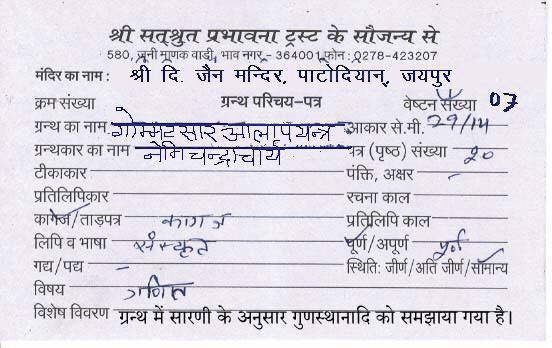 श्री सत्श्रुत प्रभावना ट्रस्ट के सौजन्य से
580, जूनी माणक वाडी, भाव नगर, - 364001 फोन : 0278-423207
मंदिर का नाम : श्री दि. जैन मन्दिर, पाटोदियान्, जयपुर
क्रम संख्या ग्रन्थ परिचय-पत्र वेष्टन संख्या 07
ग्रन्थ का नाम गोम्मटसार आलापयन्त्र आकार से.मी. 29/14
ग्रन्थकार का नाम नेमिचन्द्राचार्य पत्र (पृष्ठ) संख्या 20
टीकाकार पंक्ति, अक्षर -
प्रतिलिपिकार रचना काल
कागज/ताड़पत्र कागज प्रतिलिपि काल
लिपि व भाषा संस्कृत पूर्ण/अपूर्ण पूर्ण
गद्य/पद्य - स्थिति: जीर्ण/अति जीर्ण/सामान्य
विषय गणित
विशेष विवरण ग्रन्थ में सारणी के अनुसार गुणस्थानादि को समझाया गया है।